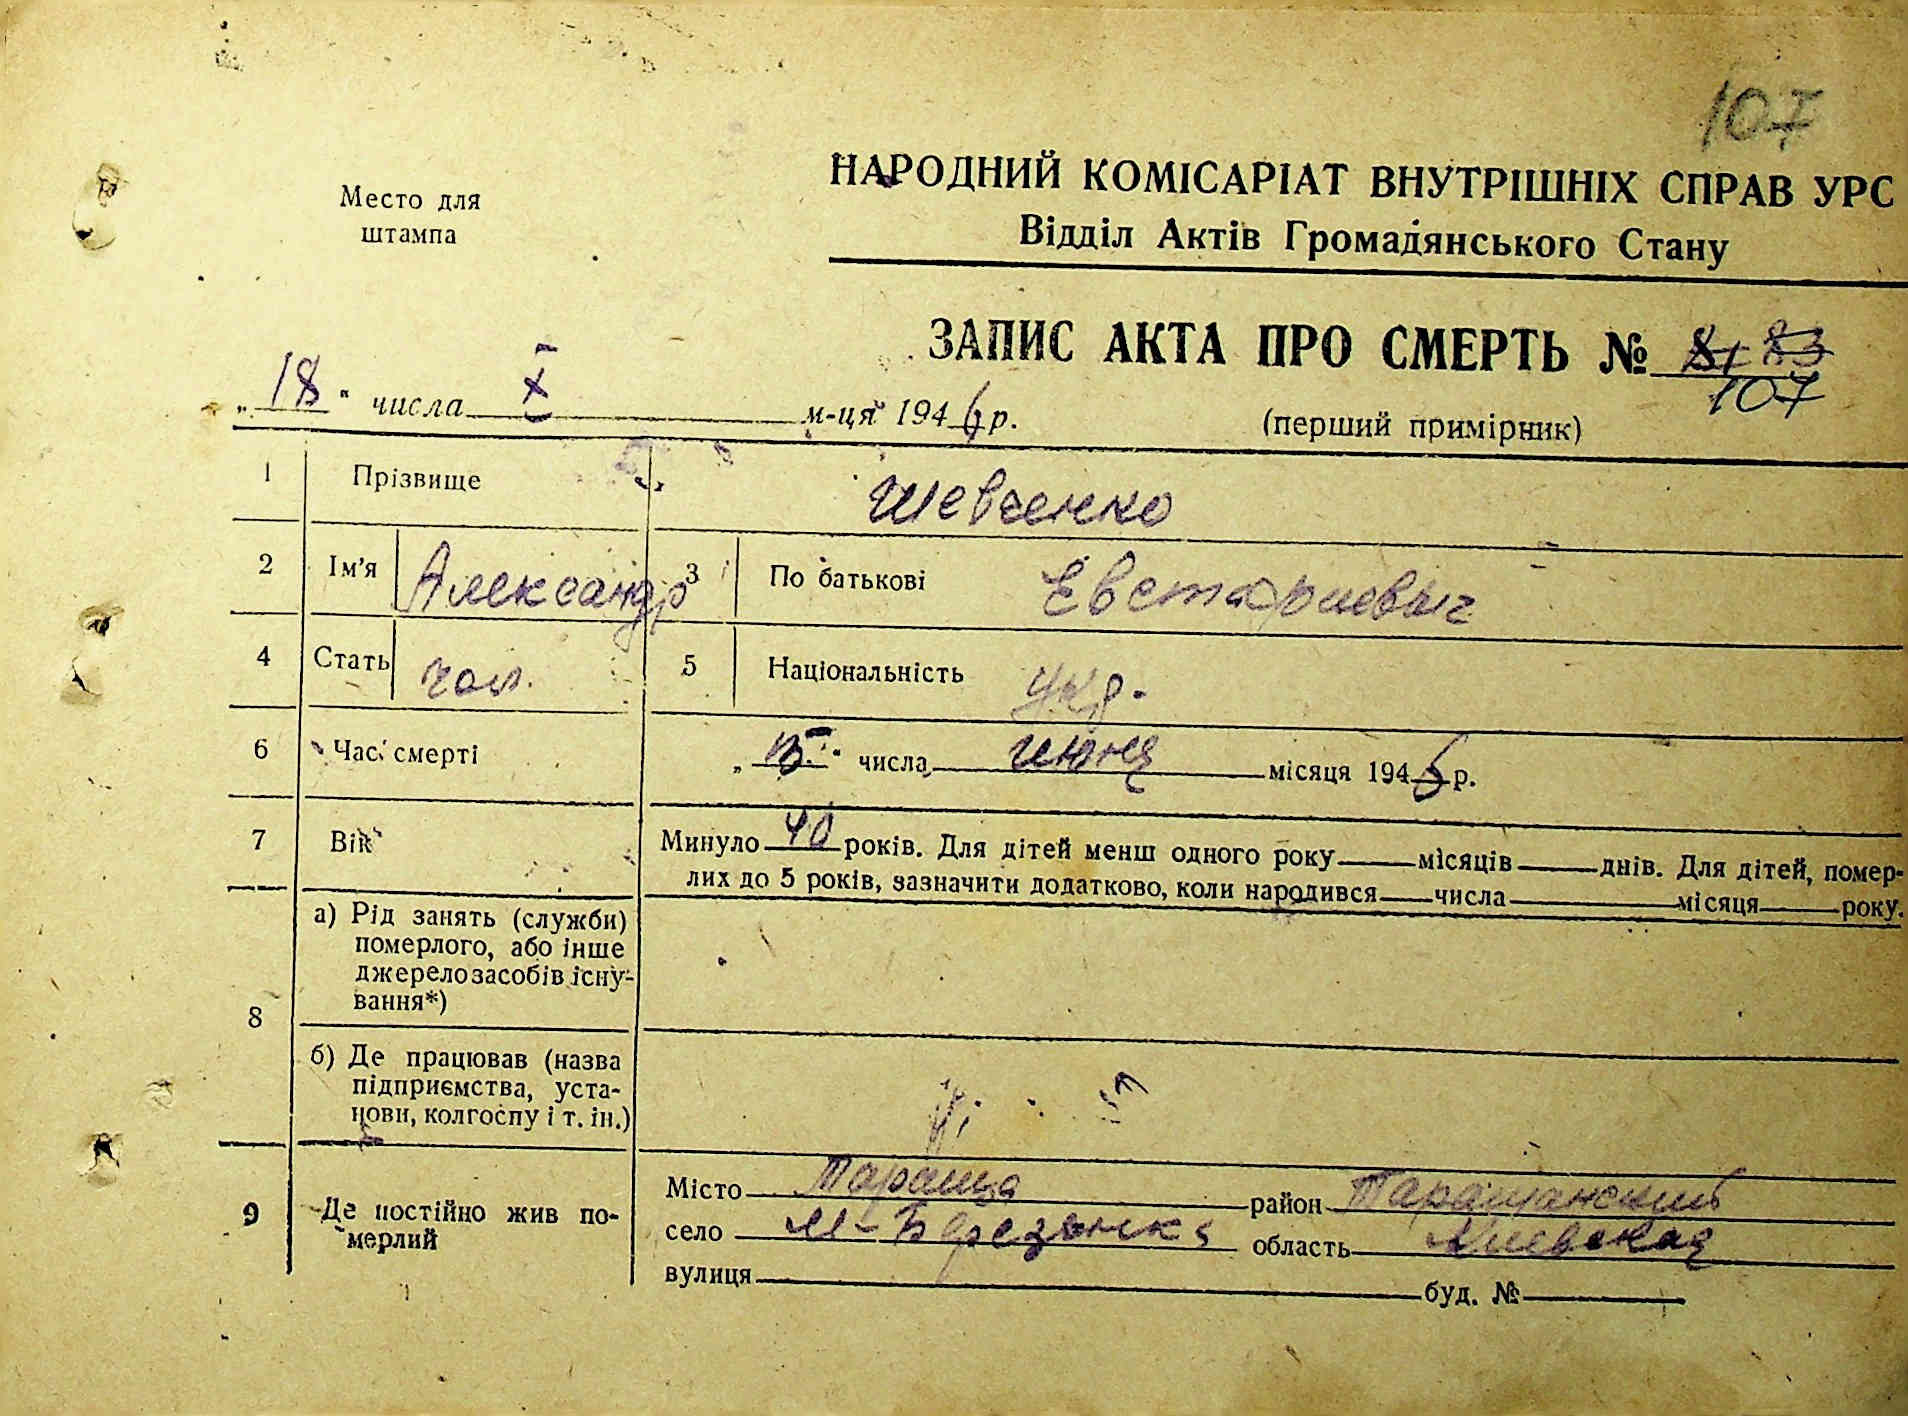 107
Место для
штампа
НАРОДНИЙ КОМІСАРІАТ ВНУТРІШНІХ СПРАВ УРС
Відділ Актів Громадянського Стану
ЗАПИС АКТА ПРО СМЕРТЬ № 81 83
107
„18" числа X м-ця 1946 р.
(перший примірник)
1 Прізвище Шевченко
2 Ім'я Александр 3 По батькові Евстафиевич
4 Стать чол. 5 Національність укр.
6 Час смерті „15" числа июня місяця 1946 р.
7 Вік Минуло 40 років. Для дітей менш одного року місяців днів. Для дітей, помер-
лих до 5 років, зазначити додатково, коли народився числа місяця року.
8 а) Рід занять (служби)
померлого, або інше
джерело засобів існу-
вання*)
б) Де працював (назва
підприємства, уста-
нови, колгоспу і т. ін.)
9 Де постійно жив по-
мерлий
Місто Тараща район Таращанский
село М-Березанка область Киевская
вулиця буд. №